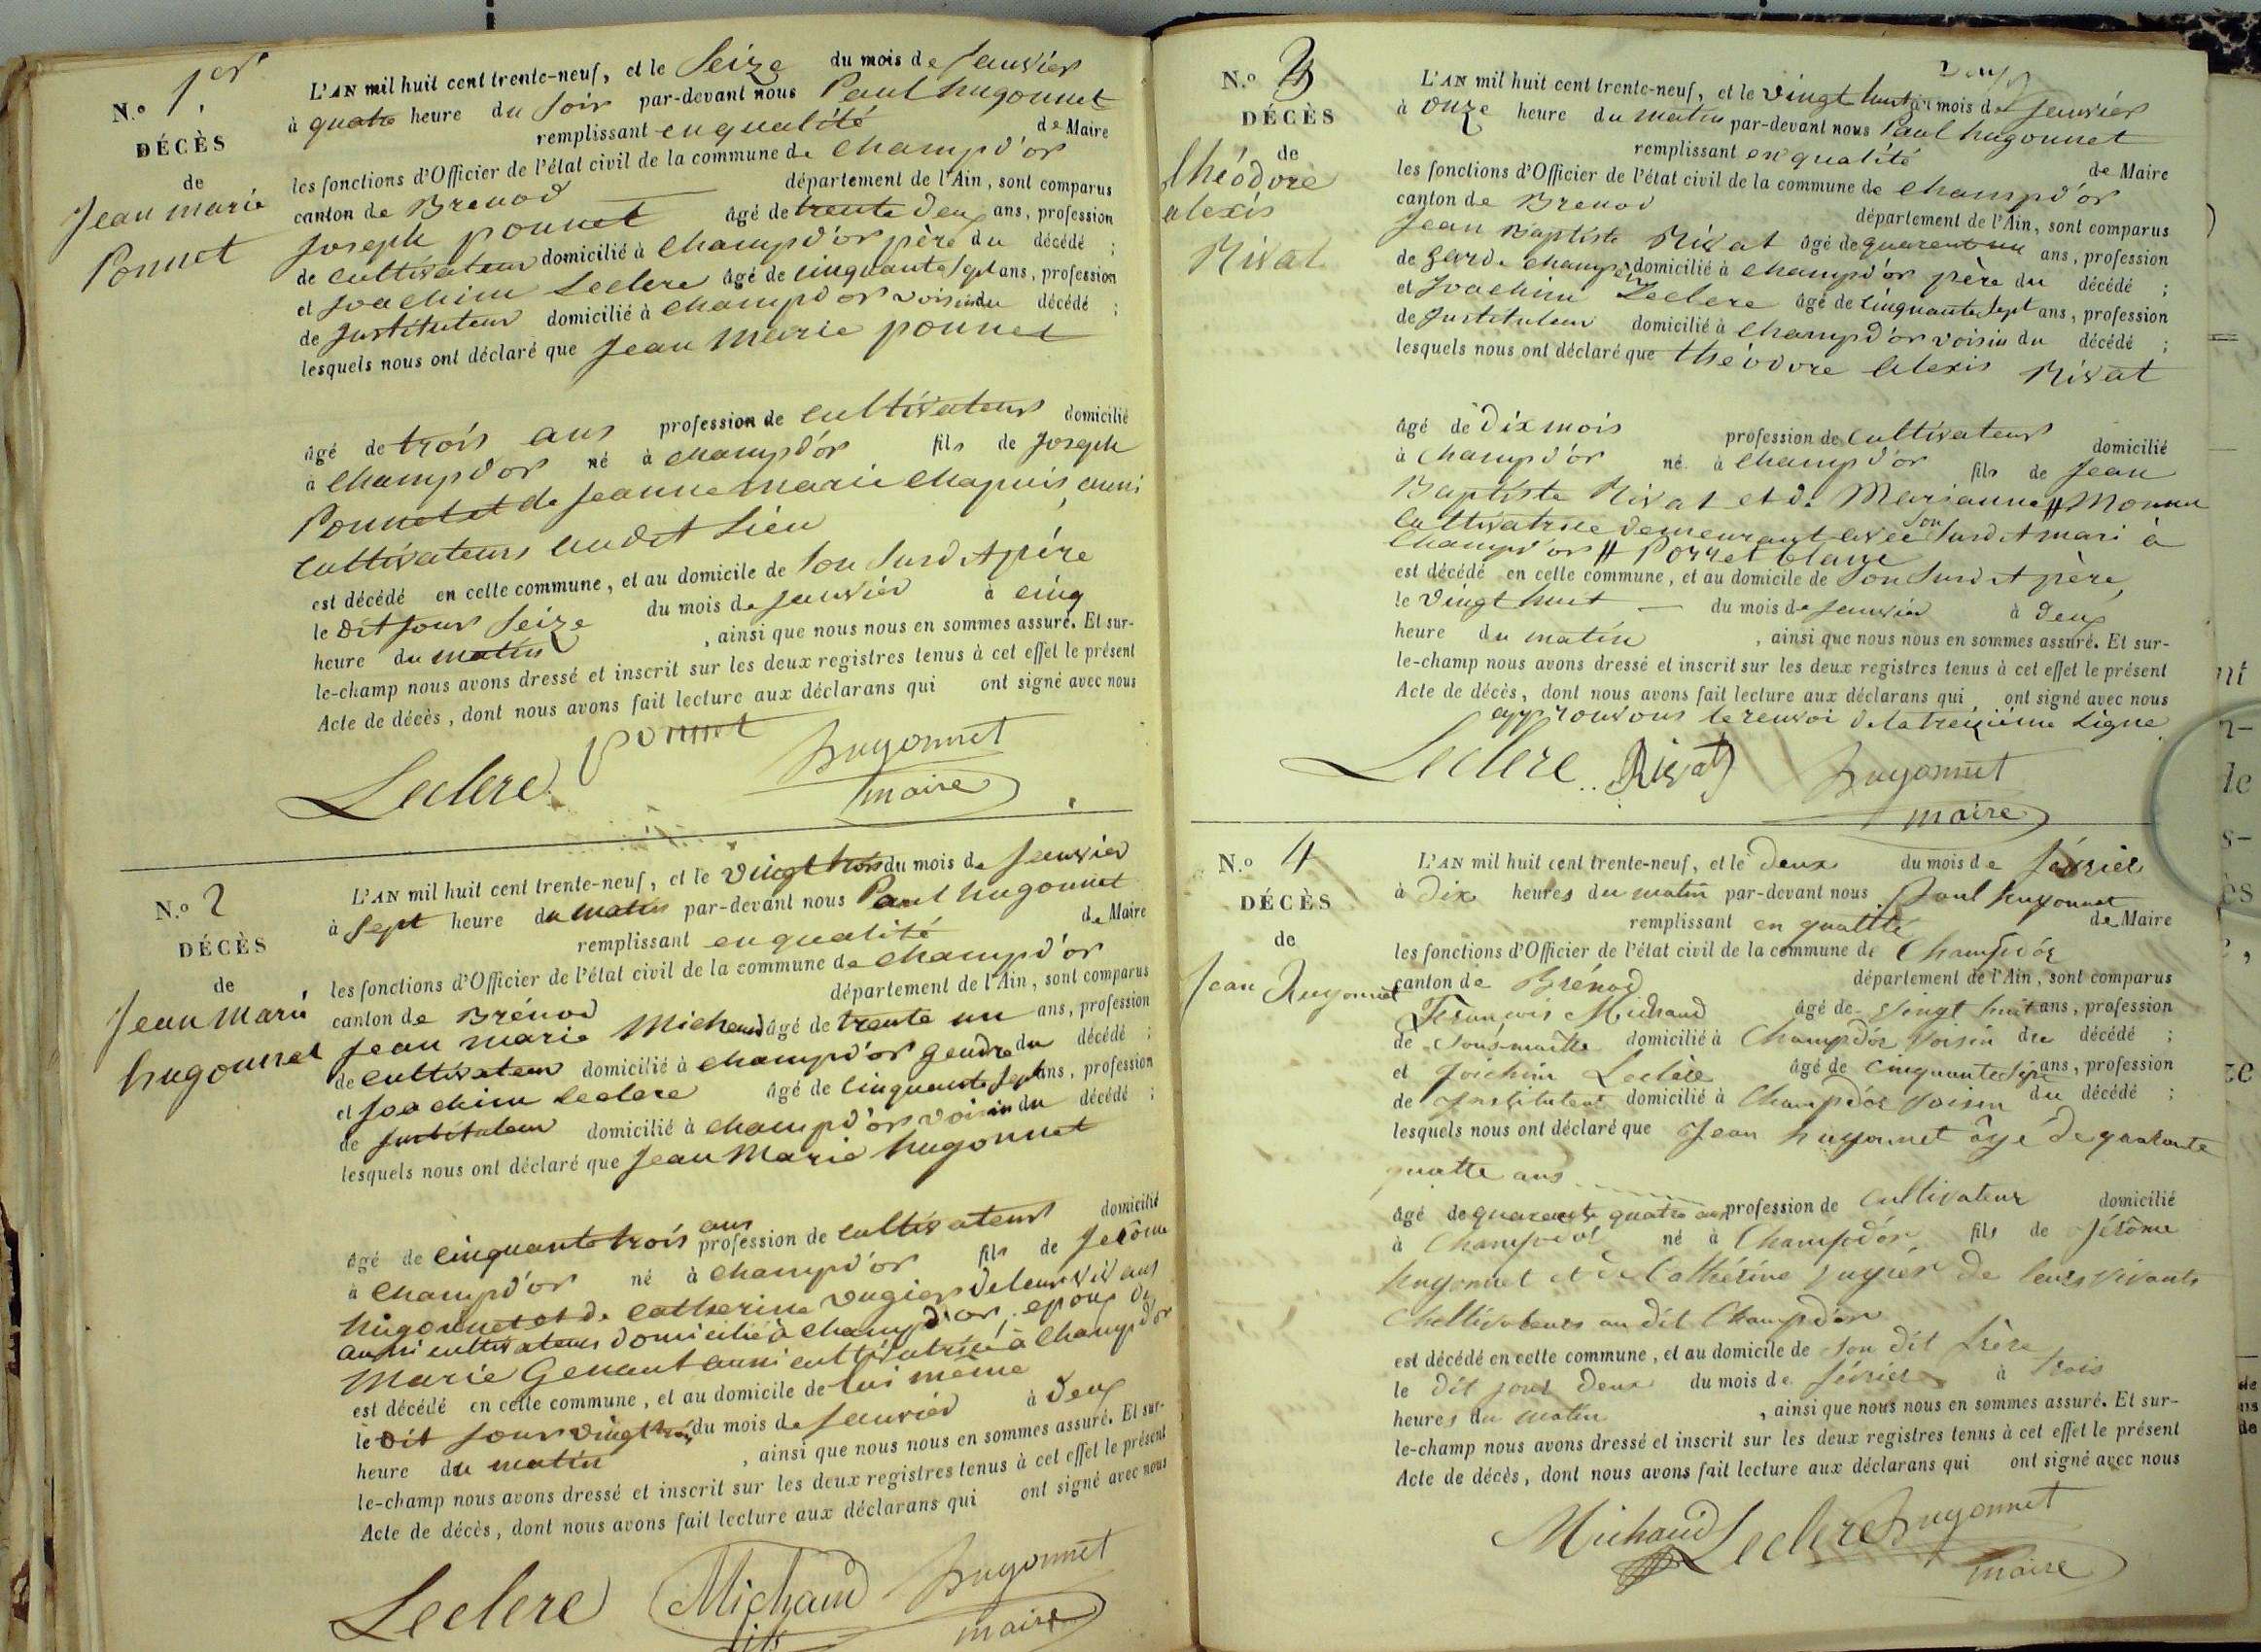 N.º 1er
DÉCÈS
de
Jean marie
Ponnet
L'AN mil huit cent trente-neuf, et le Seize du mois de Janvier
à quatre heure du Soir par-devant nous Paul hugonnet
remplissant en qualité de Maire
les fonctions d'Officier de l'état civil de la commune de Champd'or
canton de Brenod département de l'Ain, sont comparus
Joseph ponnet âgé de trente deux ans, profession
de cultivateur domicilié à Champd'or père du décédé ;
et Joachim Leclere âgé de cinquante Sept ans, profession
de Instituteur domicilié à Champd'or voisin du décédé ;
lesquels nous ont déclaré que Jean Marie ponnet
âgé de trois ans profession de cultivateur domicilié
à Champd'or né à Champd'or fils de Joseph
Ponnet et de Jeanne Marie Chapuis, aussi
cultivateurs audit Lieu
est décédé en cette commune, et au domicile de Son Susdit père
le dit Jour Seize du mois de Janvier à cinq
heure du matin , ainsi que nous nous en sommes assuré. Et sur-
le-champ nous avons dressé et inscrit sur les deux registres tenus à cet effet le présent
Acte de décès, dont nous avons fait lecture aux déclarans qui ont signé avec nous
Leclere ponnet hugonnet
maire
N.º 2
DÉCÈS
de
Jean Marie
hugonnet
L'AN mil huit cent trente-neuf, et le vingt trois du mois de Janvier
à Sept heure du matin par-devant nous Paul hugonnet
remplissant en qualité de Maire
les fonctions d'Officier de l'état civil de la commune de Champd'or
canton de Brénod département de l'Ain, sont comparus
Jean Marie Michaud âgé de trente un ans, profession
de cultivateur domicilié à Champd'or gendre du décédé ;
et Joachim Leclere âgé de cinquante Sept ans, profession
de Instituteur domicilié à Champd'or voisin du décédé ;
lesquels nous ont déclaré que Jean Marie hugonnet
âgé de cinquante trois ans profession de cultivateur domicilié
à Champd'or né à Champd'or fils de Jérôme
hugonnet et de Catherine vugier de leur vivant
aussi cultivateurs domicilié à Champd'or, epoux de
Marie Genant aussi cultivatrice à Champd'or
est décédé en cette commune, et au domicile de lui même
le dit Jour vingt trois du mois de Janvier à deux
heure du matin , ainsi que nous nous en sommes assuré. Et sur-
le-champ nous avons dressé et inscrit sur les deux registres tenus à cet effet le présent
Acte de décès, dont nous avons fait lecture aux déclarans qui ont signé avec nous
Leclere Michaud hugonnet
fils maire
N.º 3
DÉCÈS
de
théodore
alexis
Rivat
L'AN mil huit cent trente-neuf, et le vingt huit du mois de Janvier
à onze heure du matin par-devant nous Paul hugonnet
remplissant en qualité de Maire
les fonctions d'Officier de l'état civil de la commune de Champd'or
canton de Brenod département de l'Ain, sont comparus
Jean Baptiste Rivat âgé de quarent un ans, profession
de garde champêtre domicilié à Champd'or père du décédé ;
et Joachim Leclere âgé de cinquante Sept ans, profession
de Instituteur domicilié à Champd'or voisin du décédé ;
lesquels nous ont déclaré que théodore Alexis Rivat
âgé de Dix mois profession de cultivateur domicilié
à Champd'or né à Champd'or fils de Jean
Baptiste Rivat et de Marianne #
cultivatrice demeurant avec Son Susdit mari à
Champd'or # Porret blanc
est décédé en cette commune, et au domicile de Son Susdit père
le vingt huit du mois de Janvier à deux
heure du matin , ainsi que nous nous en sommes assuré. Et sur-
le-champ nous avons dressé et inscrit sur les deux registres tenus à cet effet le présent
Acte de décès, dont nous avons fait lecture aux déclarans qui ont signé avec nous
approuvons le renvoi de la treizième Ligne
Leclere Rivat hugonnet
maire
N.º 4
DÉCÈS
de
Jean Hugonnet
L'AN mil huit cent trente-neuf, et le deux du mois de février
à dix heures du matin par-devant nous Paul hugonnet
remplissant en qualité de Maire
les fonctions d'Officier de l'état civil de la commune de Champdor
canton de Brénod département de l'Ain, sont comparus
François Michaud âgé de vingt huit ans, profession
de Sous-maître domicilié à Champdor voisin du décédé ;
et Joichim Leclere âgé de cinquante Sept ans, profession
de Instituteur domicilié à Champdor voisin du décédé ;
lesquels nous ont déclaré que Jean hugonnet âgé de quarante
quatre ans
âgé de quarante quatre ans profession de cultivateur domicilié
à Champdor né à Champdor fils de Jérôme
hugonnet et de Cathérine vugier de leurs vivants
Cultivateurs au dit Champdor
est décédé en cette commune, et au domicile de Son dit frère
le dit jour deux du mois de février à trois
heures du matin , ainsi que nous nous en sommes assuré. Et sur-
le-champ nous avons dressé et inscrit sur les deux registres tenus à cet effet le présent
Acte de décès, dont nous avons fait lecture aux déclarans qui ont signé avec nous
Michaud Leclere hugonnet
maire